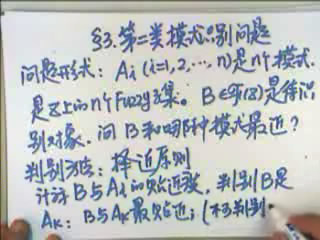 §3. 第二类模式识别问题
问题形式: Ai (i=1,2,…,n)是n个模式.
是Z上的n个Fuzzy子集。B∈𝓕(Z)是待识
别对象. 问B和哪种模式最近?
判别方法: 择近原则
计算B与Ai的贴近度. 判别B是
AK: B与AK最贴近; (称判别